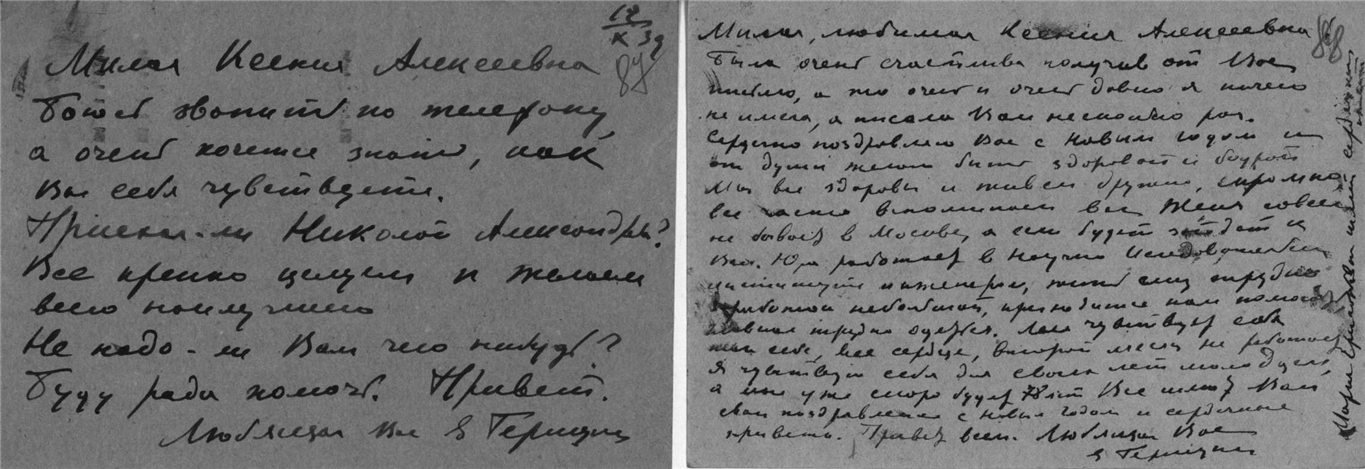 12/X 39
84
Милая Ксения Алексеевна
Боюсь звонить по телефону,
а очень хочется знать, как
Вы себя чувствуете.
Приехал-ли Николай Александр.?
Все крепко целуем и желаем
всего наилучшего
Не надо-ли Вам чего нибудь?
Буду рада помочь. Привет.
Любящая Вас Е Герицу
88
Милая, любимая Ксения Алексеевна
Была очень счастлива получив от Вас
письмо, а то очень и очень давно я ничего
не имела, а писала Вам несколько раз.
Сердечно поздравляю Вас с новым годом и
от души желаю быть здоровой и бодрой
Мы все здоровы и живем дружно, скромно
все часто вспоминаем Вас Женя совсем
не бывает в Москве, а если будет зайдет к
Вам. Юра работает в Научно Исследовательском
институте инженером, живет ему трудно
заработок небольшой, приходится нам помогать
главное трудно одеться. Ляля чувствует себя
так себе, все сердце, второй месяц не работает
Я чувствую себя для своих лет молодцом,
а мне уже скоро будет 78 лет Все шлют Вам
свои поздравления с новым годом и сердечные
приветы. Привет всем. Любящая Вас
Е Герицу
Мария шлет сердечный
привет